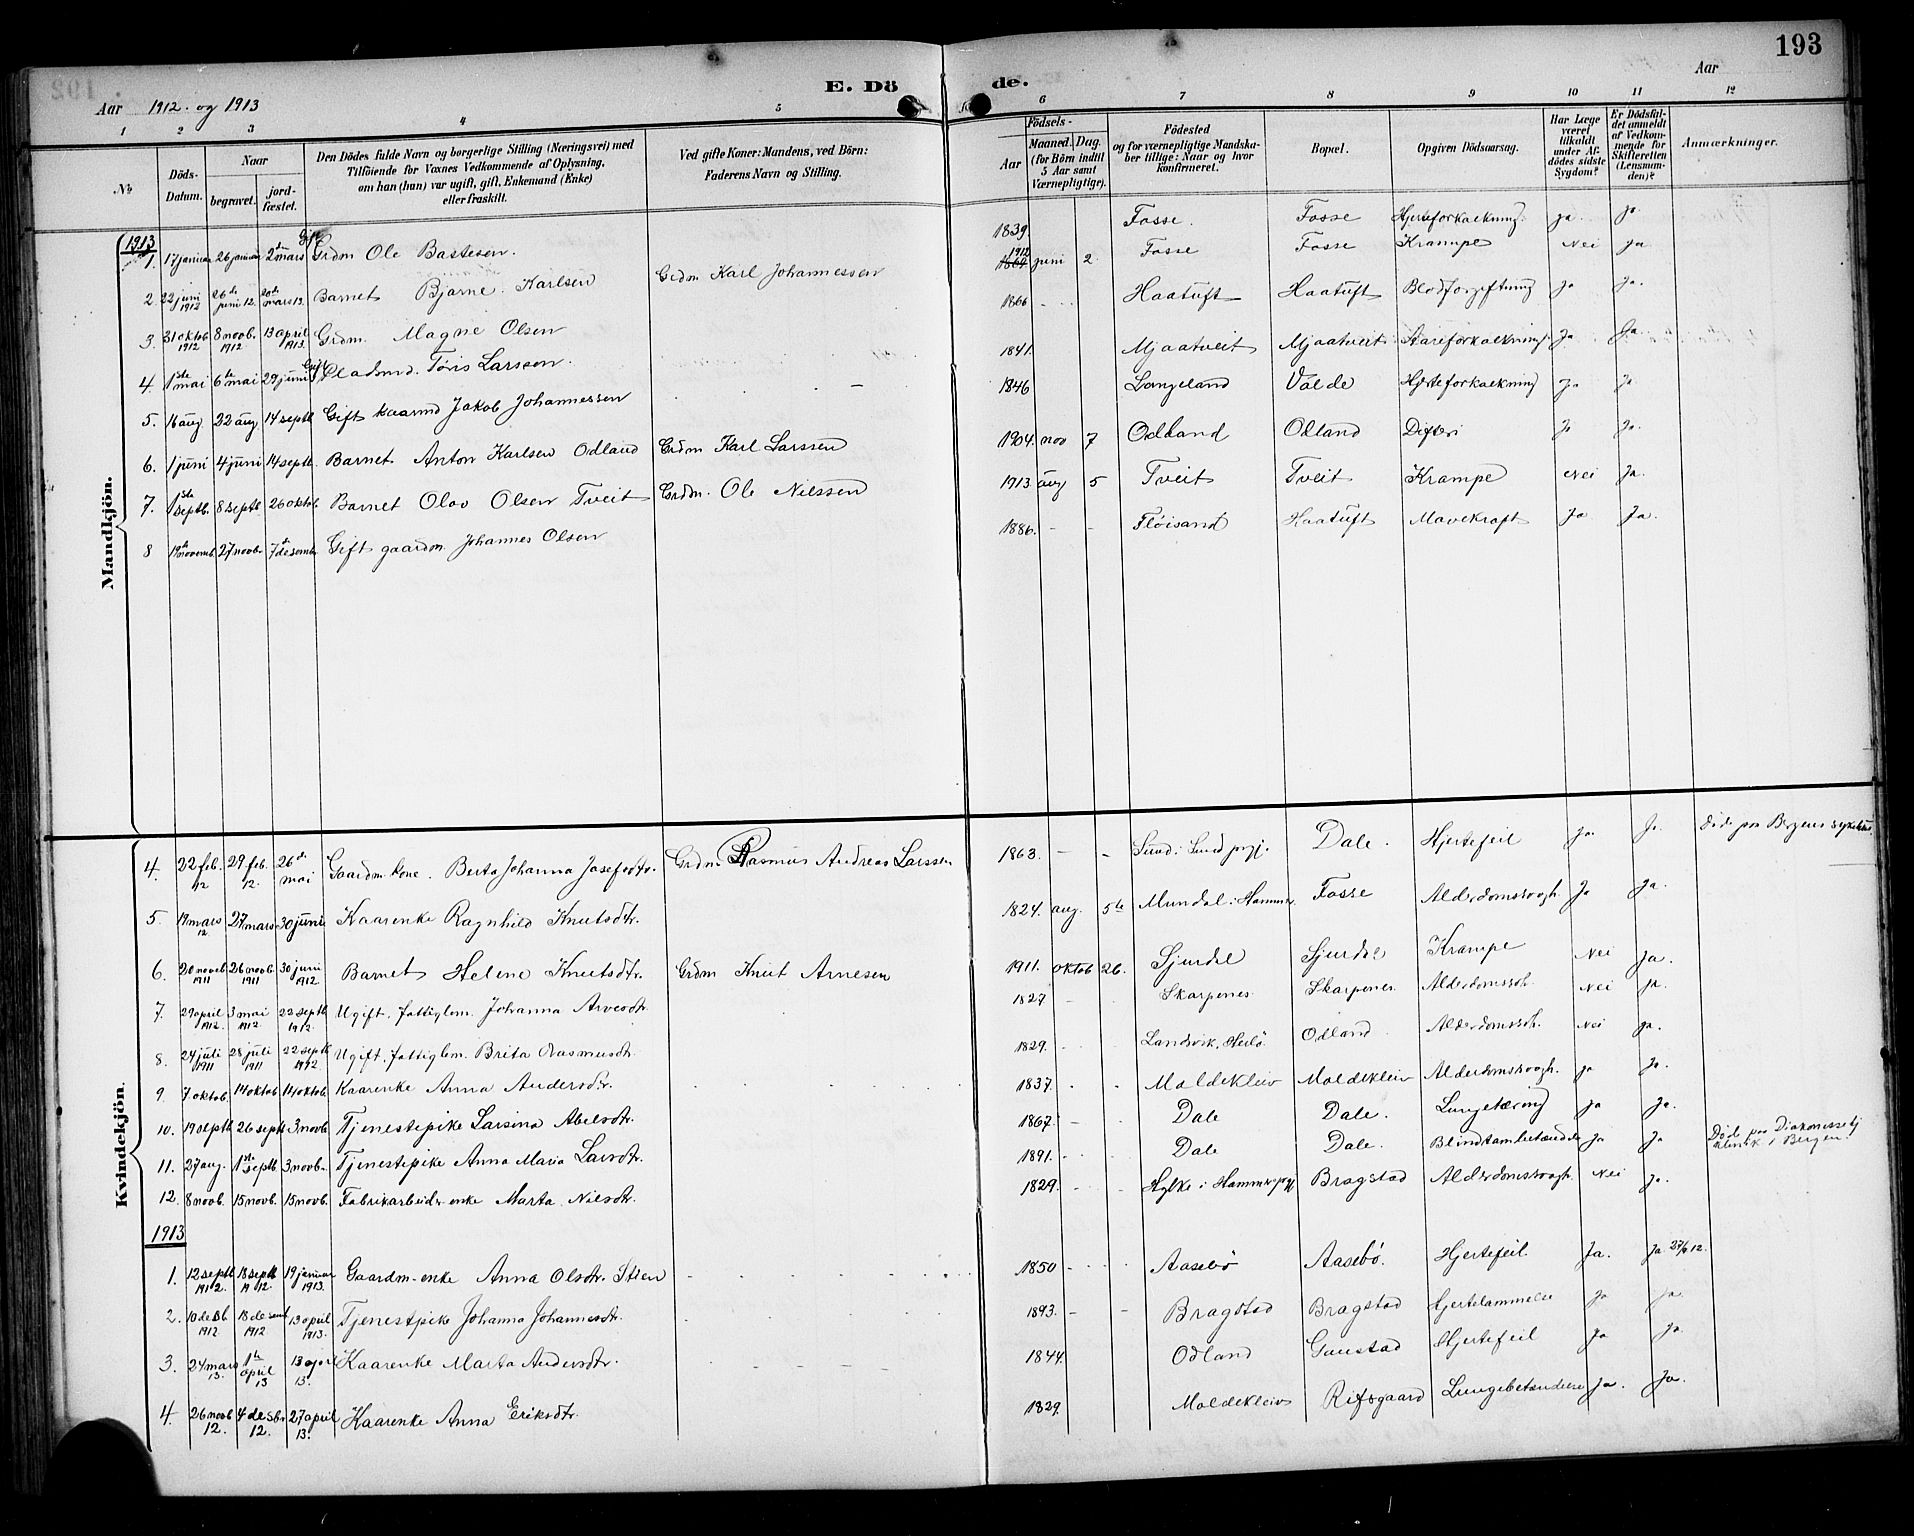 193
E. Döde.
Aar 1912. og 1913
Aar
1 2 3 4 5 6 7 8 9 10 11 12
No
Döds-Datum.
Naar begravet. jordfæstet.
Den Dödes fulde Navn og borgerlige Stilling (Næringsvei) med Tilföiende for Voxnes Vedkommende af Oplysning, om han (hun) var ugift, gift, Enkemand (Enke) eller fraskilt.
Ved gifte Koner: Mandens, ved Börn: Faderens Navn og Stilling.
Födsels- Aar Maaned. Dag. (for Börn indtil 5 Aar samt Værnepligtige).
Födested og for værnepligtige Mandskaber tillige: Naar og hvor konfirmeret.
Bopæl.
Opgiven Dödsaarsag.
Har Læge været tilkaldt under Afdödes sidste Sygdom?
Er Dödsfaldet anmeldt af Vedkommende for Skifteretten (Lensmanden)?
Anmærkninger.
Mandkjön.
1913
1. 17 januar 26 januar 2 den mars Gift Grdm Ole Bastesen. 1839. Fosse. Fosse Hjerteforkalkning. ja. ja.
2. 22 juni 1912 26 de juni 12. 20 de mars 13. Barnet Bjarne Karlsen Grdm Karl Johannessen 1912 juni 2. Fosse Fosse Krampe Nei ja
3. 31 oktob 1912 8 novb. 1912 13 april 1913. Grdm. Magne Olsen 1866 - - Haatuft Haatuft Blodforgiftning ja ja.
4. 1 ste mai 6 te mai 29 juni Gift Pladsmd. Tøris Larssen. 1841. Mjaatveit Mjaatveit Aareforkalkning. Ja Ja.
5. 16 aug. 22 aug 14 septb Gift kaarmd Jakob Johannessen - 1846 Langeland Valde Hjerteforkalkning Ja Ja
6. 1 juni 4 juni 14 septb. Barnet Anton Karlsen Odland Grdm Karl Larssen 1904. nov 7 Odland Odland Difteri Ja Ja.
7. 1 ste septb. 8 septb 26 oktob. Barnet Olav Olsen Tveit Grdm. Ole Nilssen 1913 aug 5 Tveit Tveit Krampe Nei Ja.
8 19 de novemb. 27 novb. 7 de desemb. Gift gaardm. Johannes Olsen 1886. - - Fløisand Haatuft Mavekraft Ja Ja.
Kvindekjön.
4. 22 feb. 12 29 feb. 12. 26 de mai Gaardm. kone. Berta Johanna Josefsdtr. Grdm Rasmus Andreas Larssen 1863. - - Sund i Sund prgj. Dale. Hjertefeil Ja. Ja. Døde paa Bergens sykehus
5 19 mars 12. 27 mars 30 juni Kaarenke Ragnhild Knutsdtr. 1824. aug. 5 te Mundal i Hammer. Fosse Alderdomssvagh. Ja Ja.
6. 20 novb 1911 26 novb 1911 30 juni 1912 Barnet Helene Knutsdtr. Grdm Knut Arnesen 1911. oktob 26. Sjurdal Sjurdal Krampe Nei Ja.
7. 29 april 1912. 3 mai 1912. 22 septb 1912. Ugift. fattiglem. Johanna Arvesdtr. 1827 - - Skarpenes Skarpenes. Alderdomssvh. Nei ja.
8. 24 juli 1911 28 juli 1911 22 septb 1912 Ugift. fattiglem. Brita Rasmusdtr. 1829. - - Landsvik, Herlø. Odland. Alderdomssvh. Nei ja.
9. 7 oktob. 14 oktob 14 oktob. Kaarenke Anna Andersdtr. 1837. Moldekleiv Moldekleiv Alderdomssvagh. ja Ja.
10. 19 septb 26 septb 3 novb. Tjenestepike Larsina Abelsdtr. 1867. Dale Dale. Lungetæring ja Ja.
11. 27 aug. 1 ste septb 3 novb. Tjenestepike Anna Maria Larsdtr. 1891. Dale Dale. Blindtarmbetændelse ja Ja Døde paa Diakonissehj klinik i Bergen.
12. 8 novb. 15 novb. 15 novb. Fabrikarbeidr-enke Marta Nilsdtr. 1829. Hylke i Hammer prgj Bragstad Alderdomssvagh. Nei Ja.
1913
1. 12 septb 1912. 18 septb 1912. 19 januar 1913. Gaardm-enke Anna Olsdtr. Stien 1850 Aasebø Aasebø. Hjertefeil Ja. Ja 27/9 12.
2. 10 desb. 1912 18 desemb 1912 13 april 1913. Tjenestpike Johanna Johannesdtr. 1893. - - Bragstad Bragstad Hjertelammelse ja ja.
3. 24 mars 13. 1 ste april 13 13 april 13. Kaarenke Marta Andersdtr. 1844. Odland Gaustad Hjertefeil Ja Ja.
4. 26 novb 12. 4 desbr 12. 27 april 13. Kaarenke Anna Eriksdtr. 1829. Moldekleiv Rifsgaard Lungebetændelse Ja. Ja.